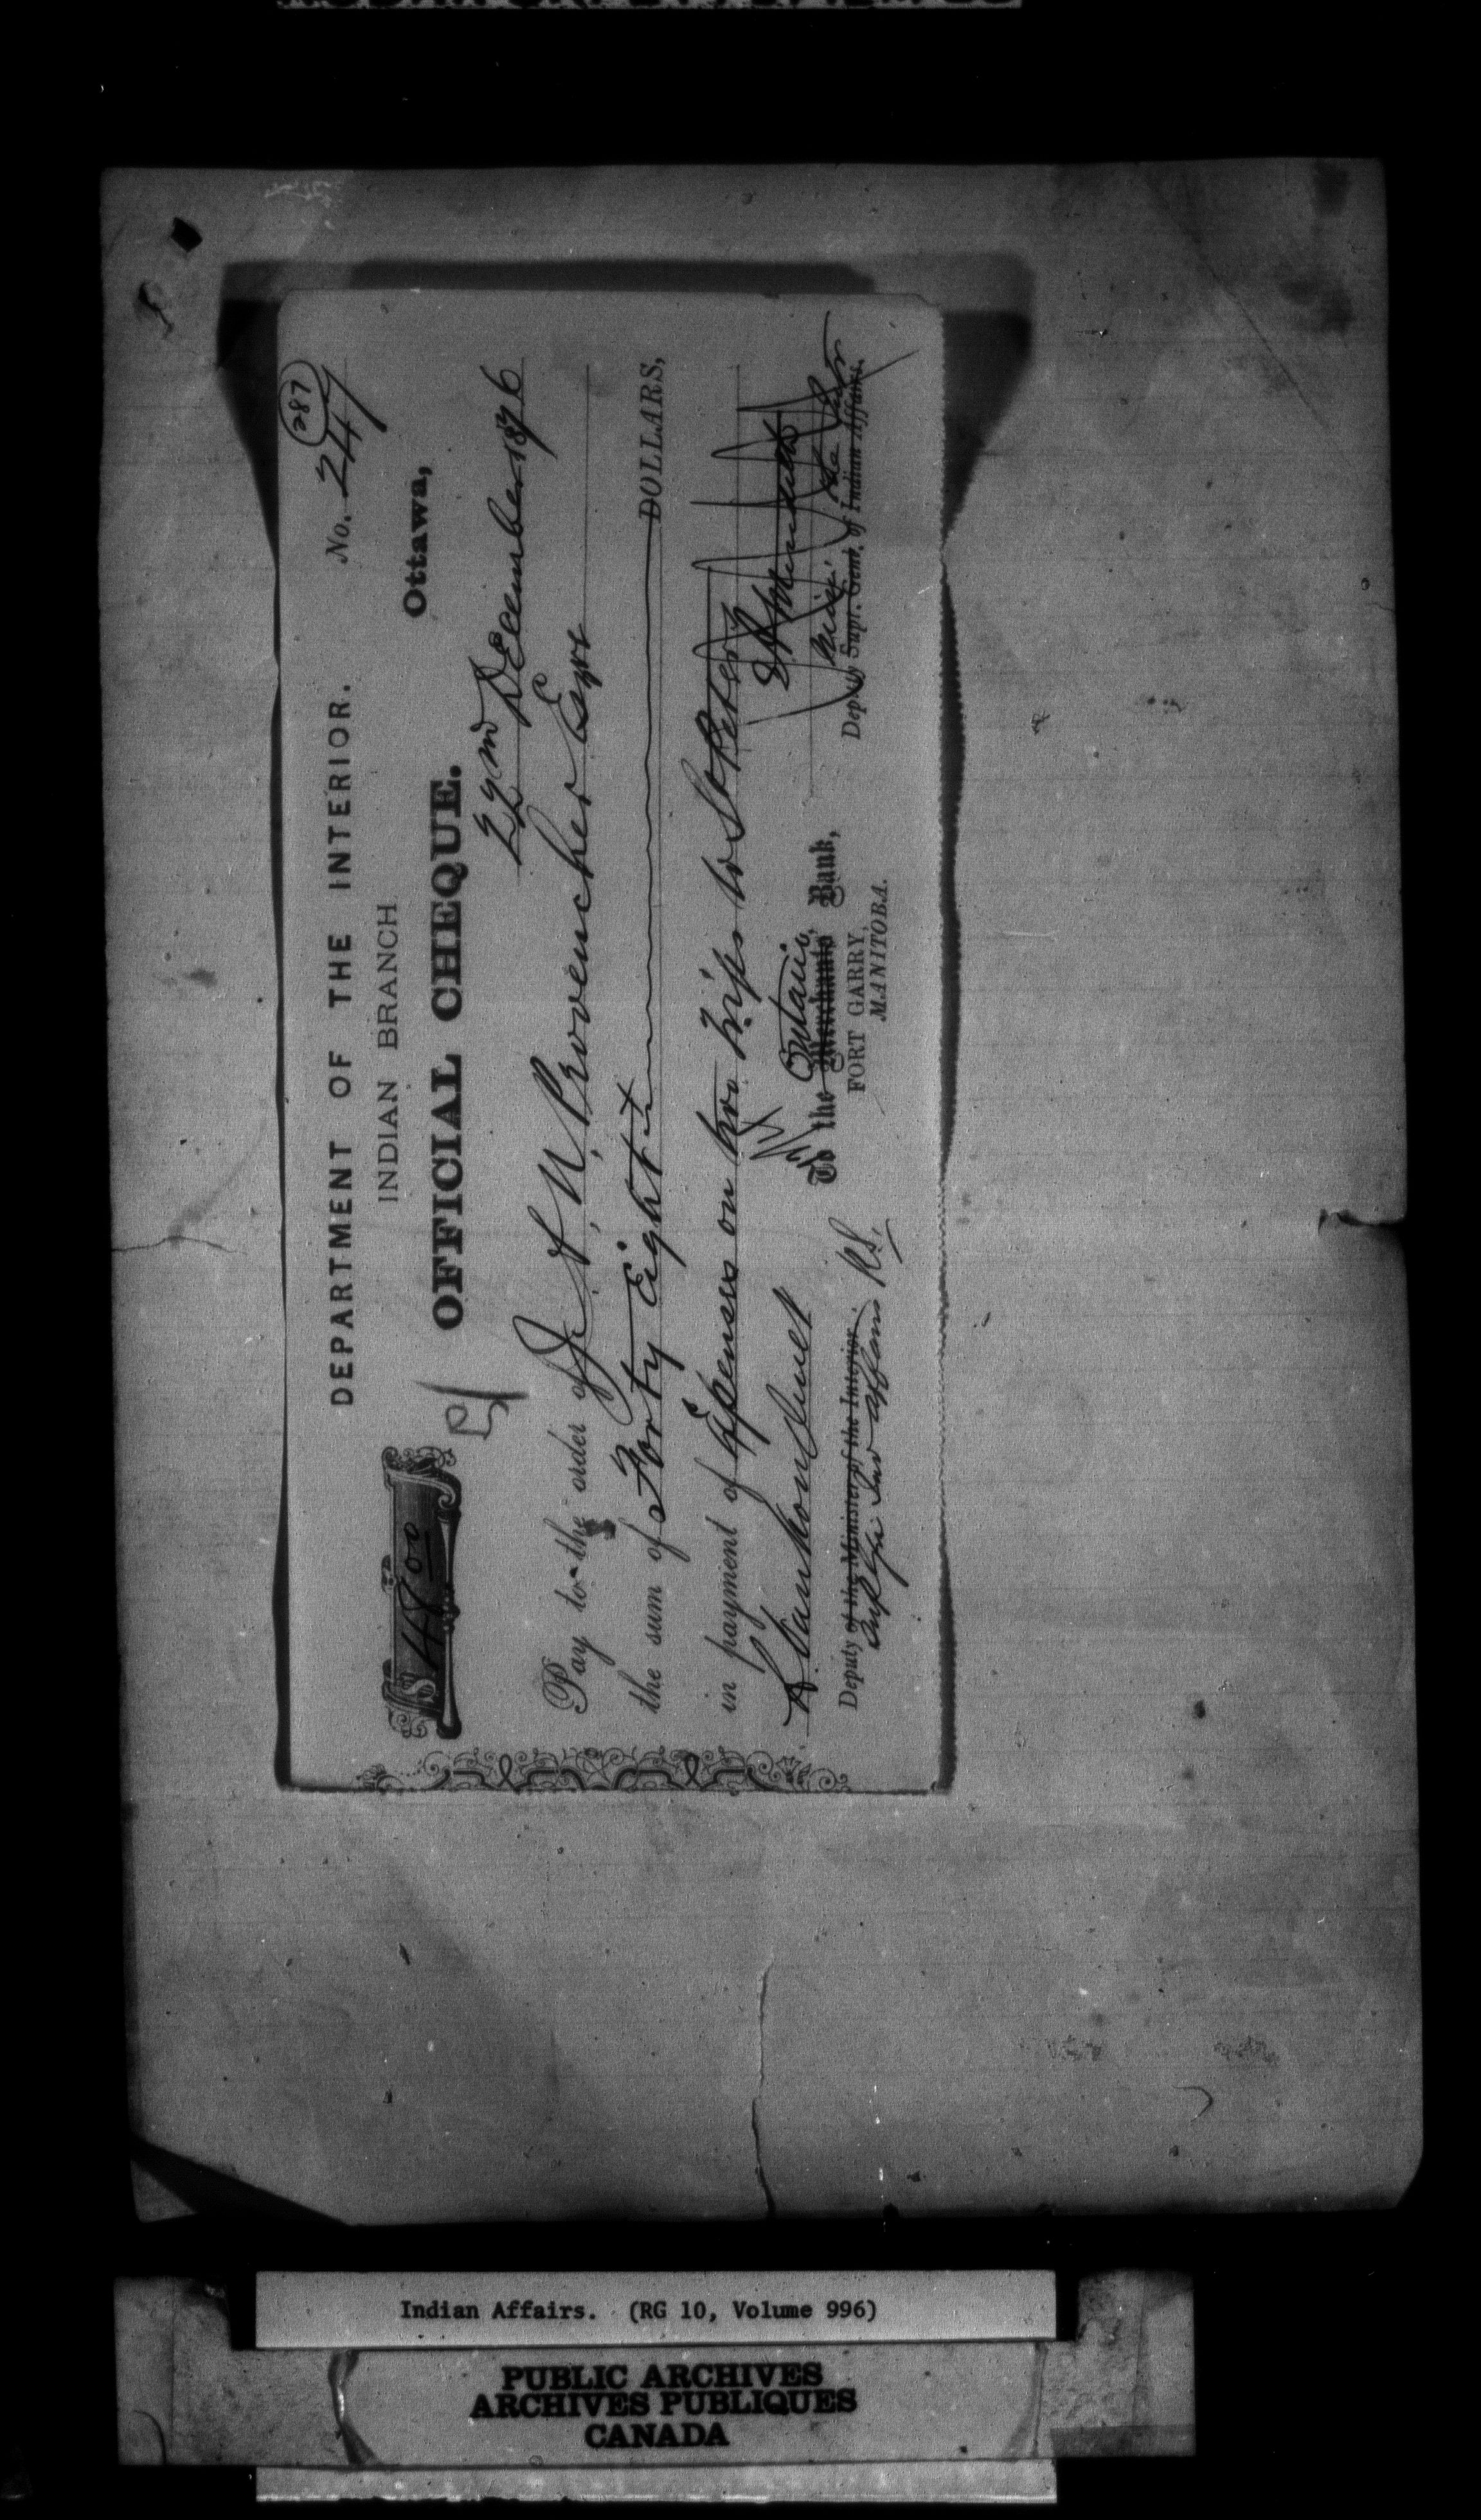 287
No. 247
DEPARTMENT OF THE INTERIOR.
INDIAN BRANCH
Ottawa,
$ 48 00
OFFICIAL CHEQUE.
22nd December 1876
Pay to the order of J. A. N. Provencher Esqre
the sum of Forty Eight DOLLARS,
in payment of Expenses on two trips to St Peters
Ontario
To the Merchants Bank,
FORT GARRY,
MANITOBA.
Deputy of the Minister of the Interior.
Deputy Supt. Genl. of Indian Affairs.
Indian Affairs. (RG 10, Volume 996)
PUBLIC ARCHIVES
ARCHIVES PUBLIQUES
CANADA